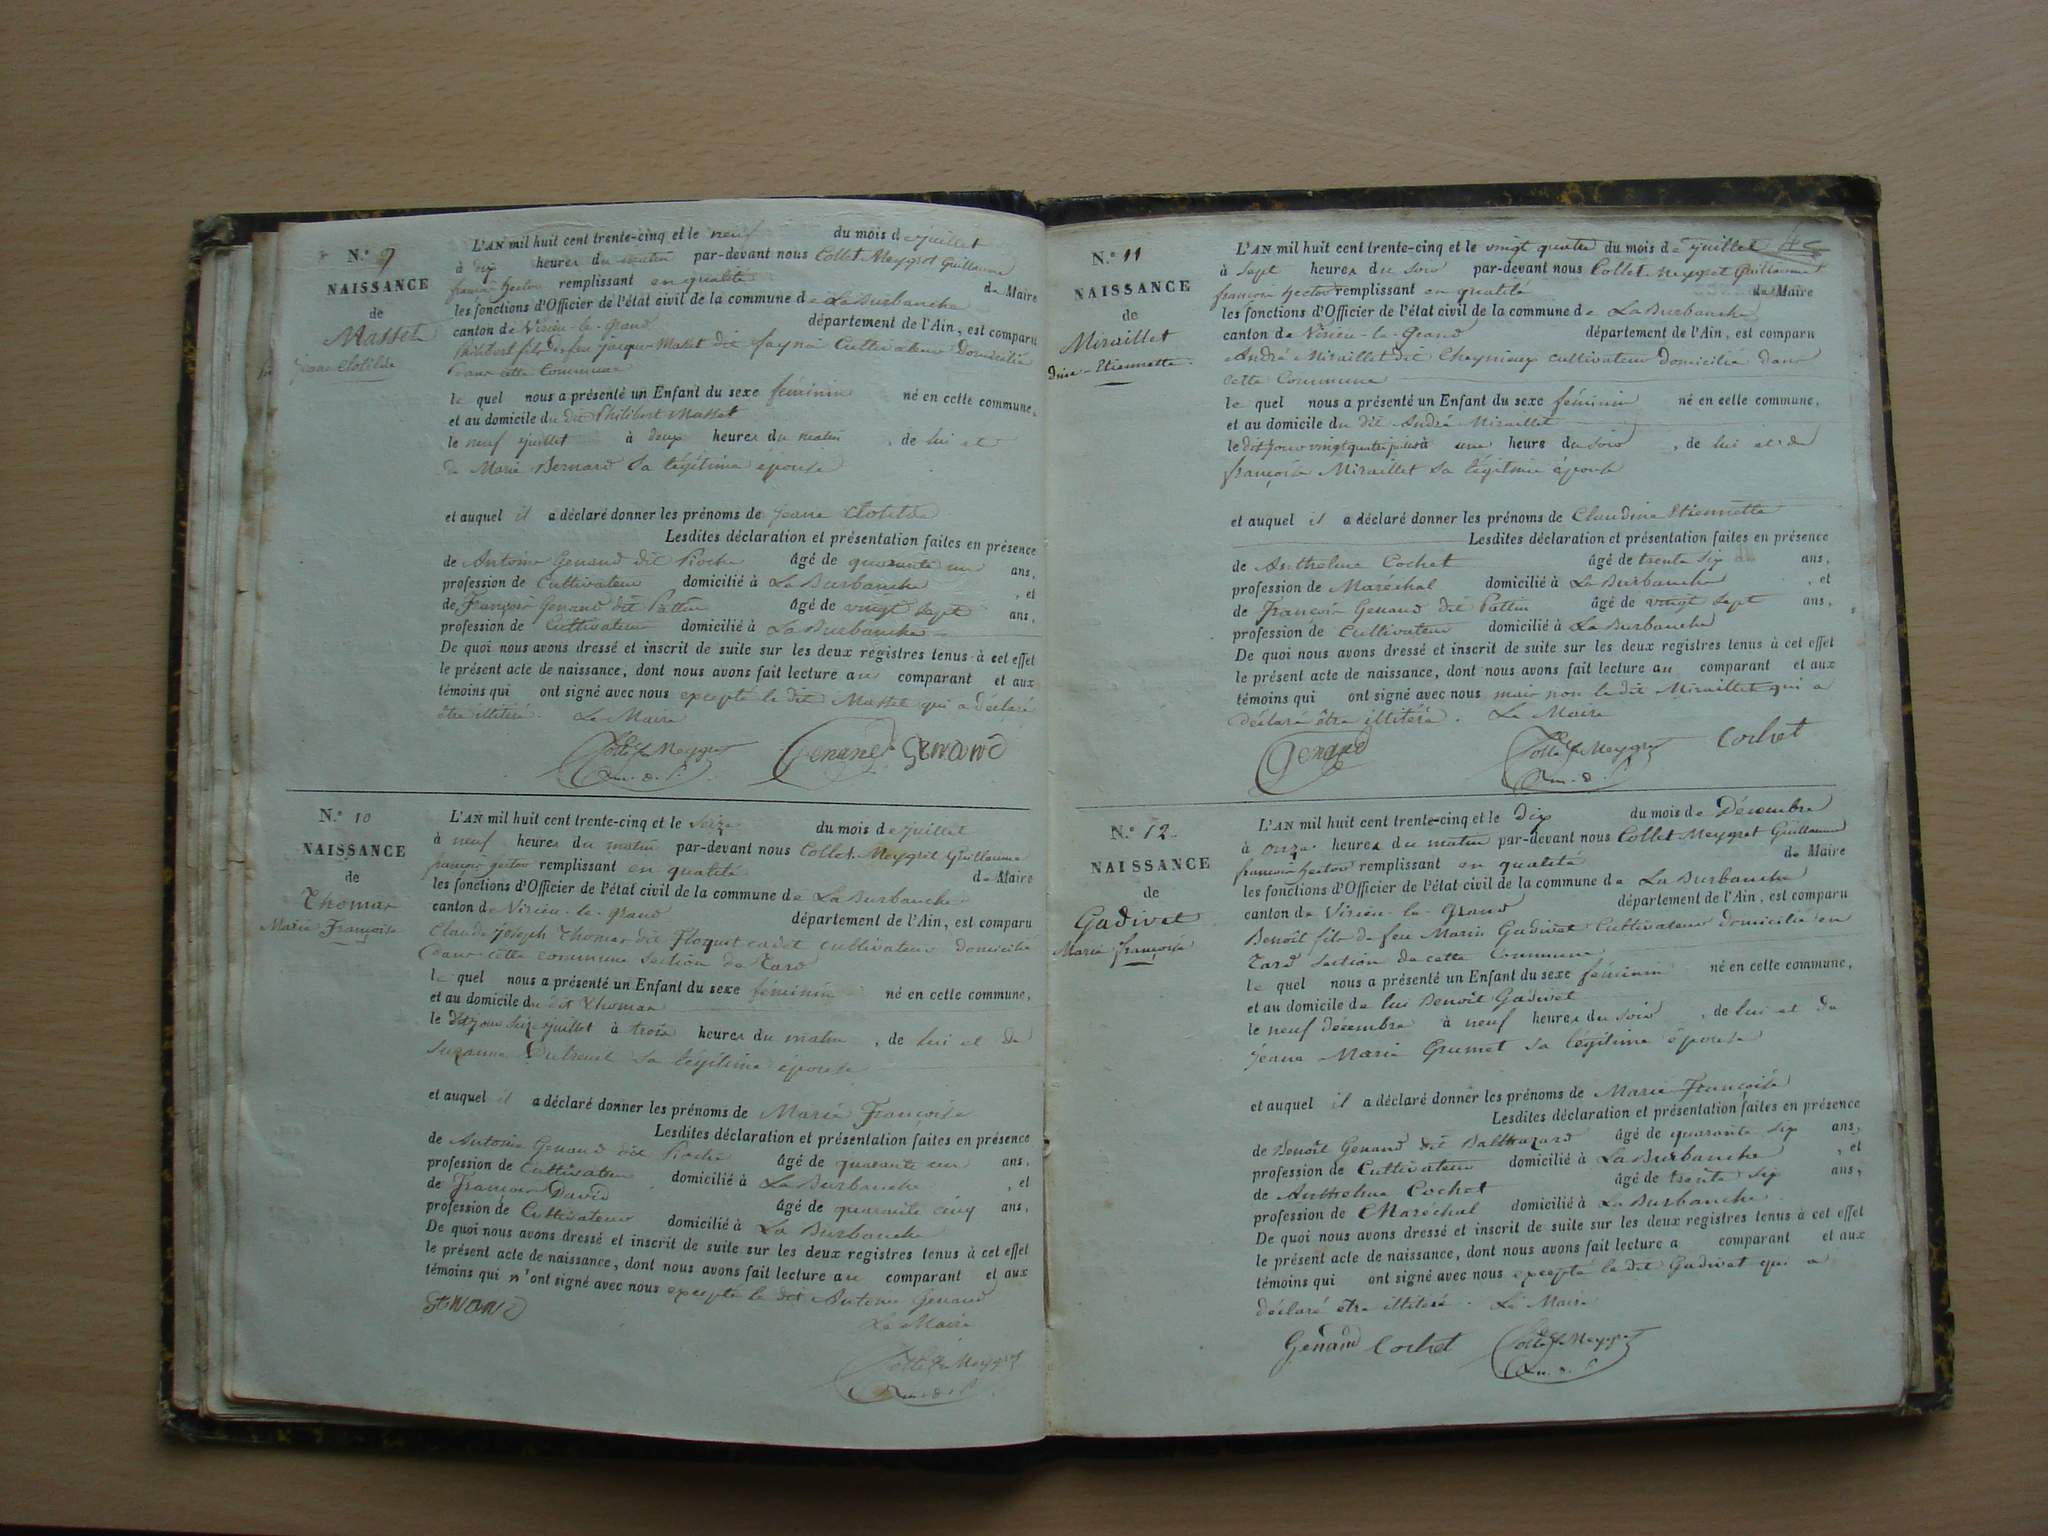 N.° 9
NAISSANCE
de
Masset
Jeane Clotilde
L'AN mil huit cent trente-cinq et le neuf du mois de juillet
à dix heures du matin par-devant nous Collet Meygret Guillaume
françois hector remplissant en qualité de Maire
les fonctions d'Officier de l'état civil de la commune de La Burbanche
canton de Virieu-le-grand département de l'Ain, est comparu
Philibert fils de feu Jacques Masset dit Cultivateur Domicilié
Dans cette Commune
le quel nous a présenté un Enfant du sexe féminin né en cette commune,
et au domicile du dit Philibert Masset
le neuf juillet à deux heures du matin , de lui et
de Marie Bernard sa légitime épouse
et auquel il a déclaré donner les prénoms de Jeane Clotilde
Lesdites déclaration et présentation faites en présence
de Antoine Genand dit Pioche âgé de quarante un ans,
profession de Cultivateur domicilié à La Burbanche , et
de François Genand dit Pattin âgé de vingt sept ans,
profession de Cultivateur domicilié à La Burbanche
De quoi nous avons dressé et inscrit de suite sur les deux registres tenus à cet effet
le présent acte de naissance, dont nous avons fait lecture au comparant et aux
témoins qui ont signé avec nous excepté le dit Masset qui a déclaré
être illitéré. Le Maire
Collet Meygret Genand Genand
N.° 10
NAISSANCE
de
Thomas
Marie Françoise
L'AN mil huit cent trente-cinq et le Seize du mois de juillet
à neuf heures du matin par-devant nous Collet Meygret Guillaume
françois hector remplissant en qualité de Maire
les fonctions d'Officier de l'état civil de la commune de La Burbanche
canton de Virieu-le-grand département de l'Ain, est comparu
Claude Joseph Thomas dit Floquet cadet cultivateur domicilié
Dans cette commune section de Tard
le quel nous a présenté un Enfant du sexe féminin né en cette commune,
et au domicile du dit Thomas
le dit jour Seize juillet à trois heures du matin , de lui et de
Suzanne Dutreuil sa légitime épouse
et auquel il a déclaré donner les prénoms de Marie Françoise
Lesdites déclaration et présentation faites en présence
de Antoine Genand dit Pioche âgé de quarante un ans,
profession de Cultivateur domicilié à La Burbanche , et
de François David âgé de quarante cinq ans,
profession de Cultivateur domicilié à La Burbanche
De quoi nous avons dressé et inscrit de suite sur les deux registres tenus à cet effet
le présent acte de naissance, dont nous avons fait lecture au comparant et aux
témoins qui n'ont signé avec nous excepté le dit Antoine Genand
Genand Le Maire
Collet Meygret
N.° 11
NAISSANCE
de
Miraillet
Etiennette
L'AN mil huit cent trente-cinq et le vingt quatre du mois de juillet
à Sept heures du soir par-devant nous Collet Meygret Guillaume
françois hector remplissant en qualité de Maire
les fonctions d'Officier de l'état civil de la commune de La Burbanche
canton de Virieu-le-grand département de l'Ain, est comparu
André Miraillet dit Cheynieux cultivateur Domicilié dans
cette Commune
le quel nous a présenté un Enfant du sexe féminin né en cette commune,
et au domicile du dit André Miraillet
le dit jour vingt quatre à une heure du soir , de lui et de
françoise Miraillet sa légitime épouse
et auquel il a déclaré donner les prénoms de Claudine Etiennette
Lesdites déclaration et présentation faites en présence
de Anthelme Cochet âgé de trente six ans,
profession de Maréchal domicilié à La Burbanche , et
de François Genand dit Pattin âgé de vingt sept ans,
profession de Cultivateur domicilié à La Burbanche
De quoi nous avons dressé et inscrit de suite sur les deux registres tenus à cet effet
le présent acte de naissance, dont nous avons fait lecture au comparant et aux
témoins qui ont signé avec nous mais non le dit Miraillet qui a
déclaré être illitéré. Le Maire
Genand Collet Meygret Cochet
N.° 12
NAISSANCE
de
Gadivet
Marie françoise
L'AN mil huit cent trente-cinq et le Dix du mois de Décembre
à onze heures du matin par-devant nous Collet Meygret Guillaume
françois hector remplissant en qualité de Maire
les fonctions d'Officier de l'état civil de la commune de La Burbanche
canton de Virieu-le-Grand département de l'Ain, est comparu
Benoît fils de feu Marin Gadivet Cultivateur domicilié en
Tard section de cette Commune
le quel nous a présenté un Enfant du sexe féminin né en cette commune,
et au domicile de lui Benoît Gadivet
le neuf décembre à neuf heures du soir , de lui et de
Jeane Marie Grumet sa légitime épouse
et auquel il a déclaré donner les prénoms de Marie Françoise
Lesdites déclaration et présentation faites en présence
de Benoît Genand dit Balthazard âgé de quarante six ans,
profession de Cultivateur domicilié à La Burbanche , et
de Anthelme Cochet âgé de trente six ans,
profession de Maréchal domicilié à La Burbanche
De quoi nous avons dressé et inscrit de suite sur les deux registres tenus à cet effet
le présent acte de naissance, dont nous avons fait lecture a comparant et aux
témoins qui ont signé avec nous excepté le dit Gadivet qui a
déclaré être illitéré. Le Maire
Genand Cochet Collet Meygret